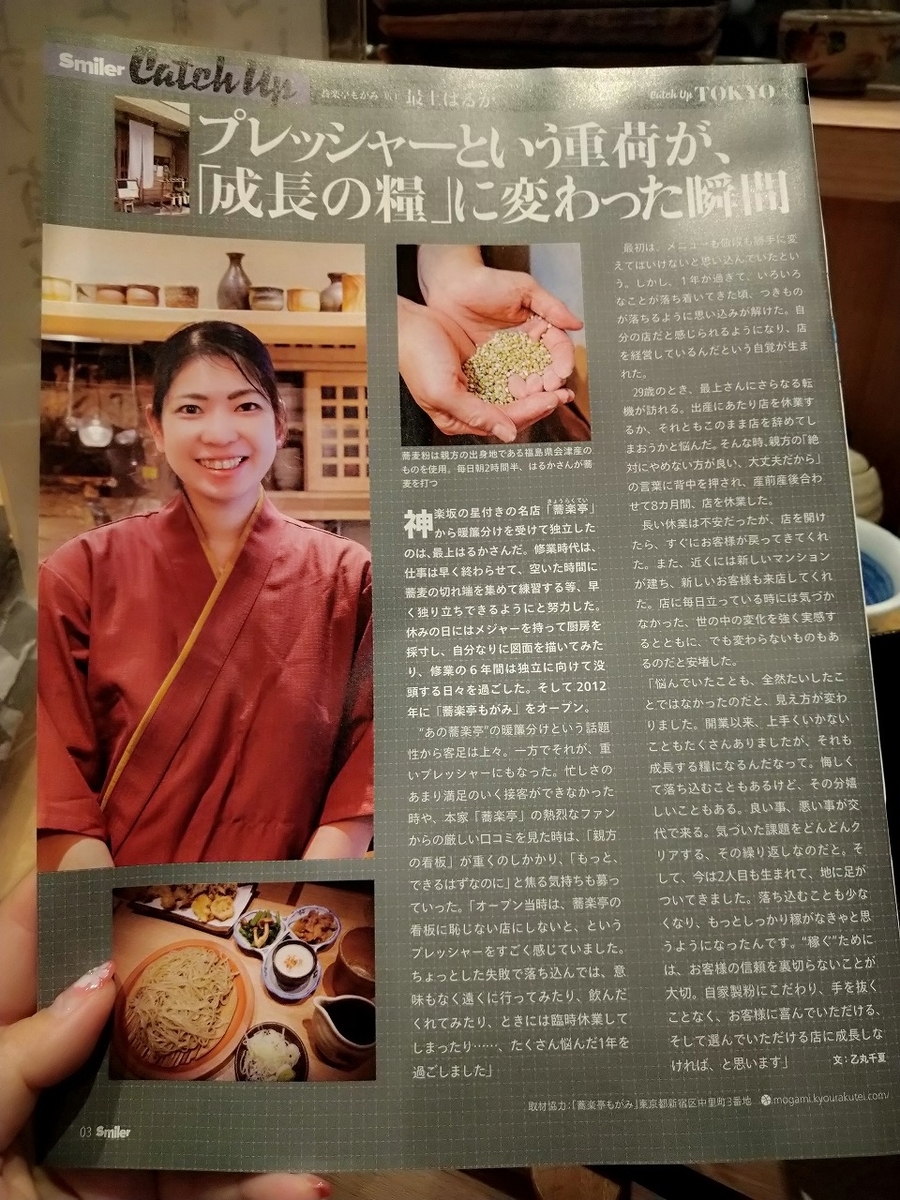 Smiler Catch Up
蕎楽亭もがみ 店主 最上はるか
Catch Up TOKYO
プレッシャーという重荷が、
「成長の糧」に変わった瞬間
蕎麦粉は親方の出身地である福島県会津産の
ものを使用。毎日朝2時間半、はるかさんが蕎
麦を打つ
きょうらくてい
神楽坂の星付きの名店「蕎楽亭」
から暖簾分けを受けて独立した
のは、最上はるかさんだ。修業時代は、
仕事は早く終わらせて、空いた時間に
蕎麦の切れ端を集めて練習する等、早
く独り立ちできるようにと努力した。
休みの日にはメジャーを持って厨房を
採寸し、自分なりに図面を描いてみた
り、修業の6年間は独立に向けて没
頭する日々を過ごした。そして2012
年に「蕎楽亭もがみ」をオープン。
“あの蕎楽亭”の暖簾分けという話題
性から客足は上々。一方でそれが、重
いプレッシャーにもなった。忙しさの
あまり満足のいく接客ができなかった
時や、本家「蕎楽亭」の熱烈なファン
からの厳しい口コミを見た時は、「親方
の看板」が重くのしかかり、「もっと、
できるはずなのに」と焦る気持ちも募っ
ていった。「オープン当時は、蕎楽亭の
看板に恥じない店にしないと、という
プレッシャーをすごく感じていました。
ちょっとした失敗で落ち込んでは、意
味もなく遠くに行ってみたり、飲んだ
くれてみたり、ときには臨時休業して
しまったり……、たくさん悩んだ1年を
過ごしました」
最初は、メニューも値段も勝手に変
えてはいけないと思い込んでいたとい
う。しかし、1年が過ぎて、いろいろ
なことが落ち着いてきた頃、つきもの
が落ちるように思い込みが解けた。自
分の店だと感じられるようになり、店
を経営しているんだという自覚が生ま
れた。
29歳のとき、最上さんにさらなる転
機が訪れる。出産にあたり店を休業す
るか、それともこのまま店を辞めてし
まおうかと悩んだ。そんな時、親方の「絶
対にやめない方が良い、大丈夫だから」
の言葉に背中を押され、産前産後合わ
せて8カ月間、店を休業した。
長い休業は不安だったが、店を開け
たら、すぐにお客様が戻ってきてくれ
た。また、近くには新しいマンション
が建ち、新しいお客様も来店してくれ
た。店に毎日立っている時には気づか
なかった、世の中の変化を強く実感す
るとともに、でも変わらないものもあ
るのだと安堵した。
「悩んでいたことも、全然たいしたこ
とではなかったのだと、見え方が変わ
りました。開業以来、上手くいかない
こともたくさんありましたが、それも
成長する糧になるんだなって。悔しく
て落ち込むこともあるけど、その分嬉
しいこともある。良い事、悪い事が交
代で来る。気づいた課題をどんどんク
リアする、その繰り返しなのだと。そ
して、今は2人目も生まれて、地に足が
ついてきました。落ち込むことも少な
くなり、もっとしっかり稼がなきゃと思
うようになったんです。“稼ぐ”ために
は、お客様の信頼を裏切らないことが
大切。自家製粉にこだわり、手を抜く
ことなく、お客様に喜んでいただける、
そして選んでいただける店に成長しな
ければ、と思います」
文：乙丸千夏
取材協力：「蕎楽亭もがみ」東京都新宿区中里町3番地 mogami.kyourakutei.com/
03 Smiler